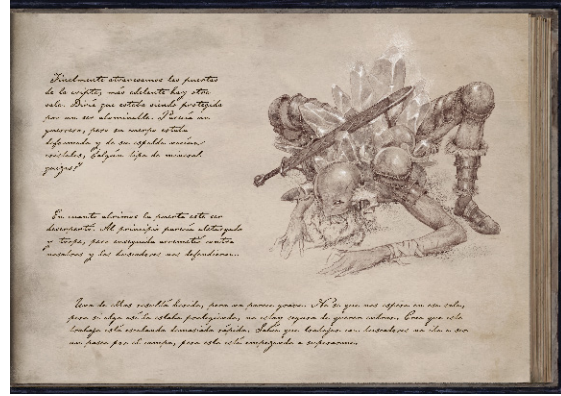 Finalmente atravesamos las puertas
de la cripta, más adelante hay otra
sala. Diría que estaba siendo protegida
por un ser abominable. Parecía un
guerrero, pero su cuerpo estaba
deformado y de su espalda nacían
cristales, ¿algún tipo de mineral
quizás?
En cuanto abrimos la puerta este ser
despertó. Al principio parecía aletargado
y torpe, pero enseguida arremetió contra
nosotros y los buscadores nos defendieron...
Uno de ellos resultó herido, pero no parece grave. No sé que nos espera en esa sala,
pero si algo así la estaba protegiendo, no estoy segura de querer entrar. Creo que este
trabajo está escalando demasiado rápido. Sabía que trabajar con buscadores no iba a ser
un paseo por el campo, pero esto está empezando a superarme.